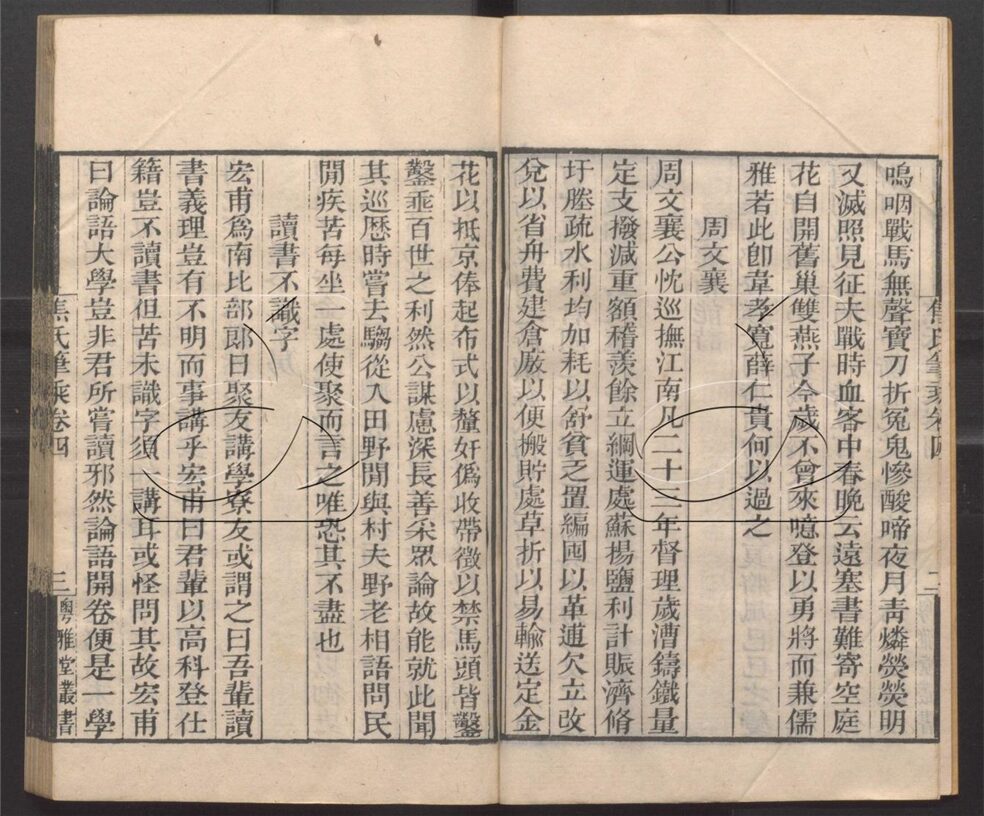 嗚咽戰馬無聲寶刀折冤鬼慘酸啼夜月靑燐熒熒明
又滅照見征夫戰時血客中春晚云遠塞書難寄空庭
花自開舊巢雙燕子今歲不曾來噫登以勇將而兼儒
雅若此卽韋孝寬薛仁貴何以過之
周文襄
周文襄公忱巡撫江南凡二十三年督理歲漕鑄鐵量
定支撥減重額稽羨餘立綱運處蘇楊鹽利計賑濟脩
圩塍疏水利均加耗以舒貧乏置編囤以革逋欠立改
兌以省舟費建倉廒以便搬貯處草折以易輸送定金
花以抵京俸起布式以釐奸僞收帶徵以禁馬頭皆鑿
鑿乖百世之利然公謀慮深長善采眾論故能就此聞
其巡歷時嘗去騶從入田野閒與村夫野老相語問民
閒疾苦每坐一處使聚而言之唯恐其不盡也
讀書不識字
宏甫爲南比部郎日聚友講學寮友或謂之曰吾輩讀
書義理豈有不明而事講乎宏甫曰君輩以高科登仕
籍豈不讀書但苦未識字須一講耳或怪問其故宏甫
曰論語大學豈非君所嘗讀邪然論語開卷便是一學
焦氏筆乘卷四
三
粵雅堂叢書